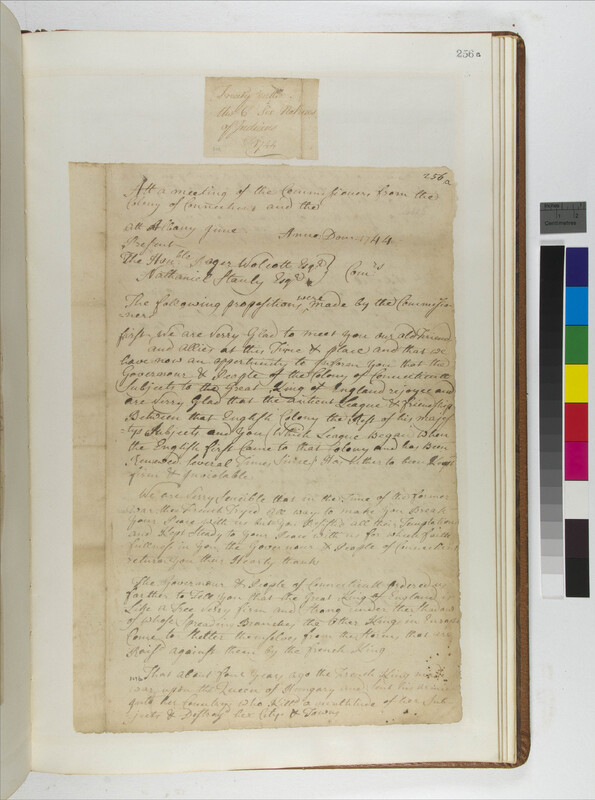 256a
Treaty with
the 6 Six Nations
of Indians
1744
256a
Att a meeting of the Commissioners from the
Colony of Connecticut and the
att Albany June Anno Dom 1744
Present
The Honble Roger Wolcott Esqr
Nathaniel Stanly Esqr } Comrs
The following propositions were made by the Commissio
ners
first We are Verry Glad to meet you our old friend
and Allies at this Time & place and that we
have now an opportunity to Inform you that the
Governour & People of the Colony of Connecticutt
Subjects to the Great King of England rejoyce and
are Verry Glad that the antient League & friendship
Between that English Colony the Rest of his majes
=tys Subjects and you Which League Began When
the English first Came to that Colony and has Been
Renewed Several Times Since Has hither to been Kept
firm & Inviolable
We are Verry Sencible that in the time of the former
war the French Tryed all way to make you Break
your Peace with us but you Resisted all their Temptation
and Kept Steady to your Peace with us for which faith
fullness in you the Governour & People of Connecticut
return you their Hearty thanks
The Governour & People of Connecticutt ordered us
farther to Tell you that the Great King of England is
Like a Tree Verry firm and Strong under the Shadow
of whose Spreading Branches the Other Kings in Europe
Come to Shelter themselves from the Storms that are
Raisd against them by the French King
That about four Years ago the French King
war upon the Queen of Hungary and sent his armies
into her Country who Killd a multitude of her Sub
jects & Destroyd her Citys & Towns